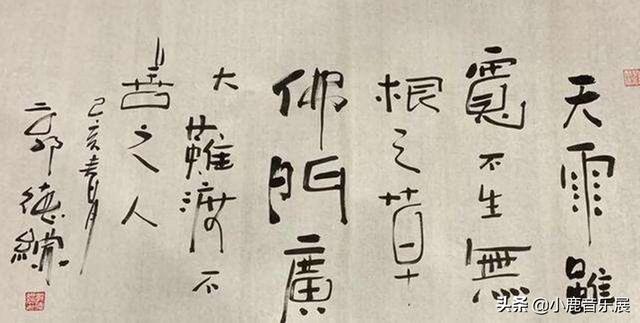 天雨雖
寬不生無
根之草
佛門廣
大難渡不
善之人
己亥春月
郭德綱
头条 @小鹿音乐展